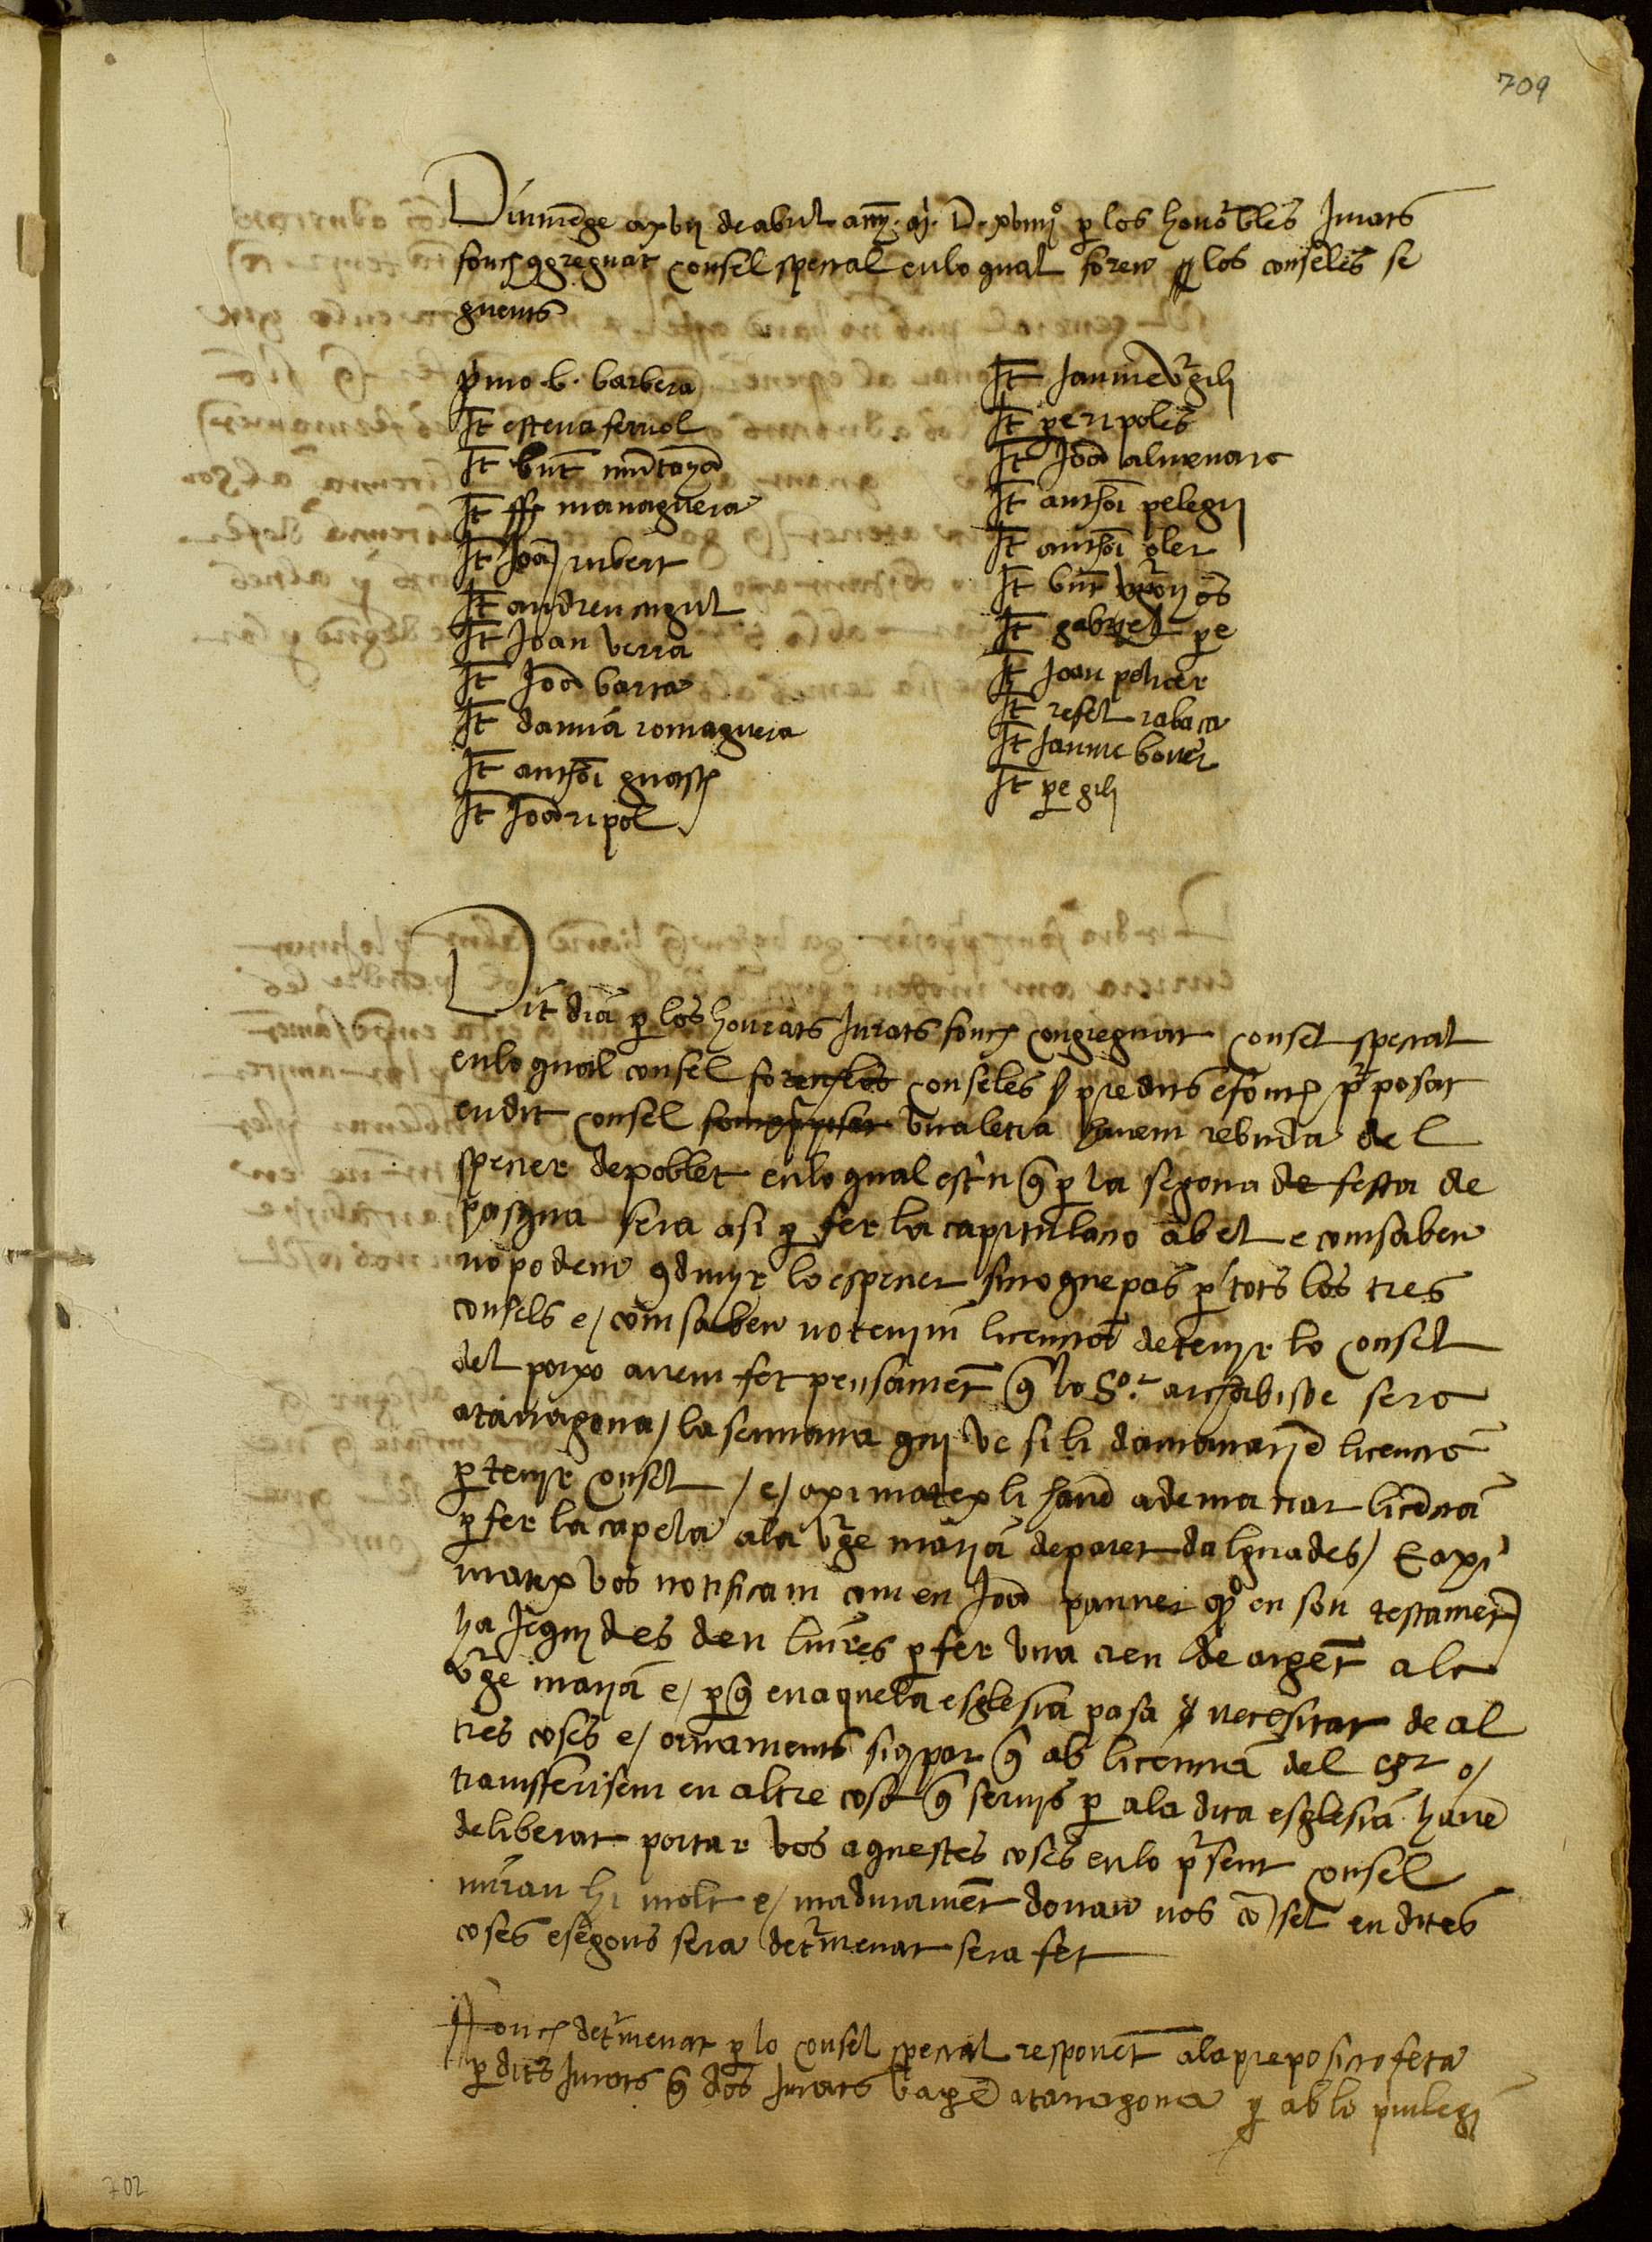 709
Diumẽge a xbij de abril any m. D. xbiiijº p los honorbles Jurats
fonch 9gregat consel specal en lo qual foren los conseles se
guents
pimo b. barbera
It esteva ferriol
It bnt muntayã
It ff managuera
It Joã rubert
It andreu cugul
It Joan verra
It Joã barra
It damiã romaguera
It anthoi guasch
It Joã ripol
It Jaume vrgili
It pe ripoles
It Joã almenara
It anthoi pelegri
It anthoi oler
It bnt
It gabriel pe
It Joan policer
It refel rabaca
It Jaume bover
It pe gili
Dit dia p los honrats Jurats fonch congregat consel specal
en lo qual consel foren los conseles predits e fonch pposat
en dit consel fonch pposat una letra havem rebuda del
specier de poblet en lo qual estu q p la segona de festa de
pasqua sera asi p fer la capitulacio ab el e com saben
no podem 9duyr lo especier sino que pas p tots los tres
consels e com saben no tenim licencia de tenir lo consel
del porxo avem fet pensament q lo Sor archabisbe sera
a tarragona la semmana qui ve si li damanariẽ licencia
p tenir consel e aximatex li havẽ ademanar licẽcia
p fer la capela a la vrge maria de paret dalguades E axi
matex vos notificam com en Joã pauner qº en son testament
ha jequides deu liures p fer una creu de argẽt a la
vrge maria e p q en aquela esglesia pasa necesitat de al
tres coses e ornaments si us par q ab licencia del sor o
transferisem en altre cosa q servis p a la dita esglesia havẽ
deliberat portar vos aquestes coses en lo psent consel
mirau hi molt e maduramẽt donau nos cõsel en dites
coses e segons sera detrmenat sera fet
Fonch detrmenat p lo consel specal responẽt a la preposicio feta
p dits Jurats q dos Jurats vagẽ a tarragona p ab lo privlegi
702